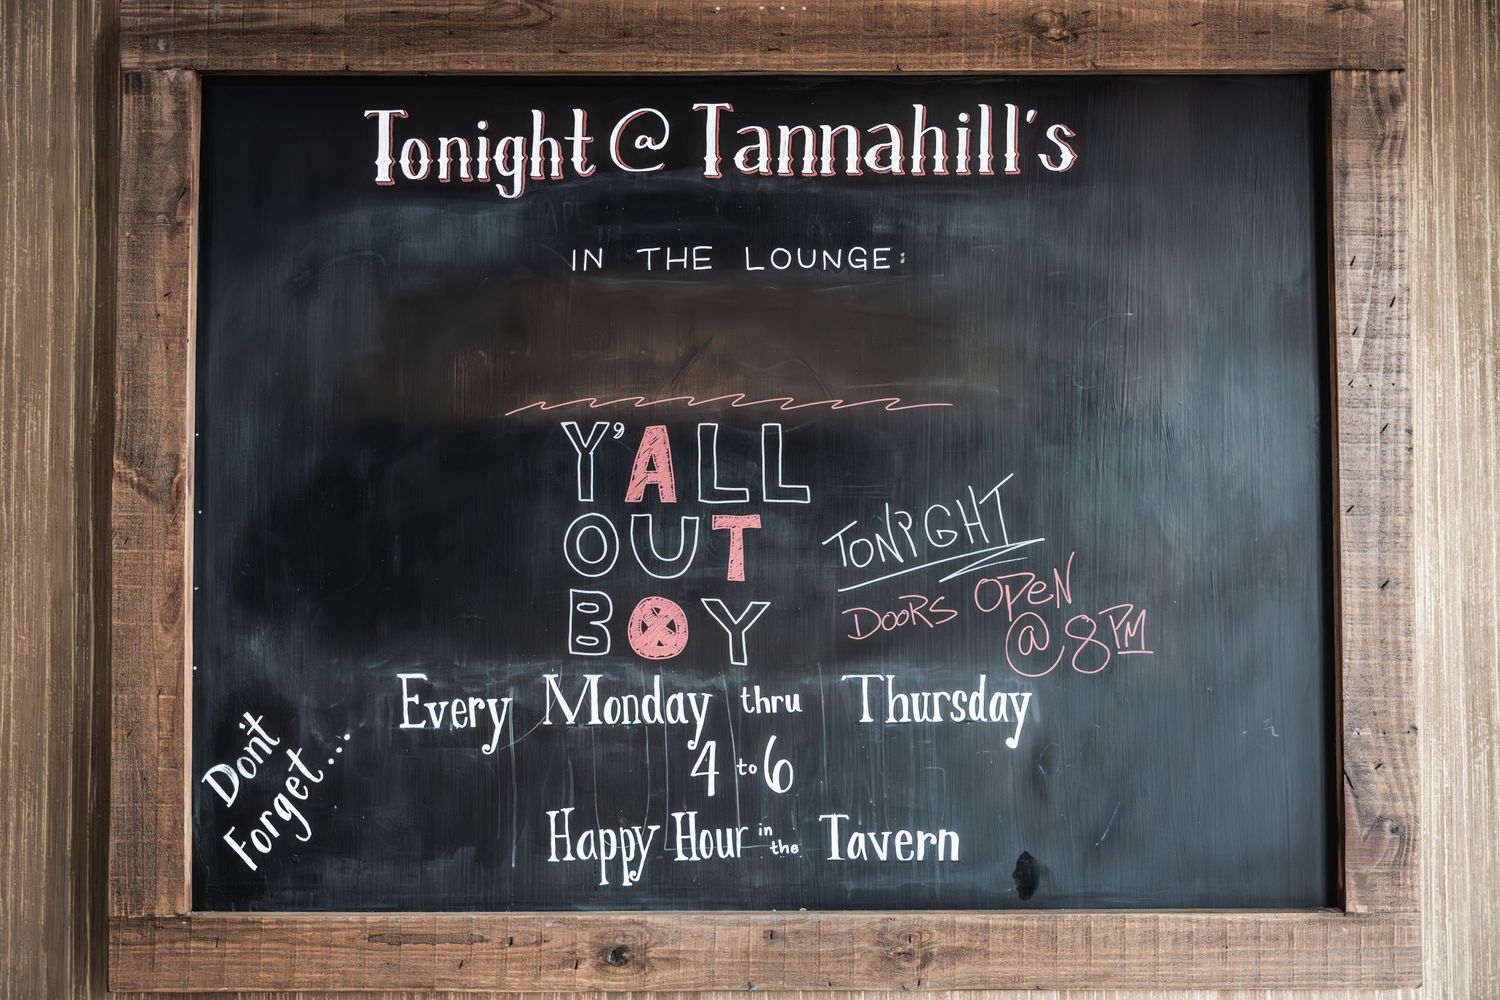 Tonight @ Tannahill's
IN THE LOUNGE:
Y'ALL
OUT
BOY
TONIGHT
DOORS OPEN
@ 8PM
Don't
Forget...
Every Monday thru Thursday
4 to 6
Happy Hour in the Tavern